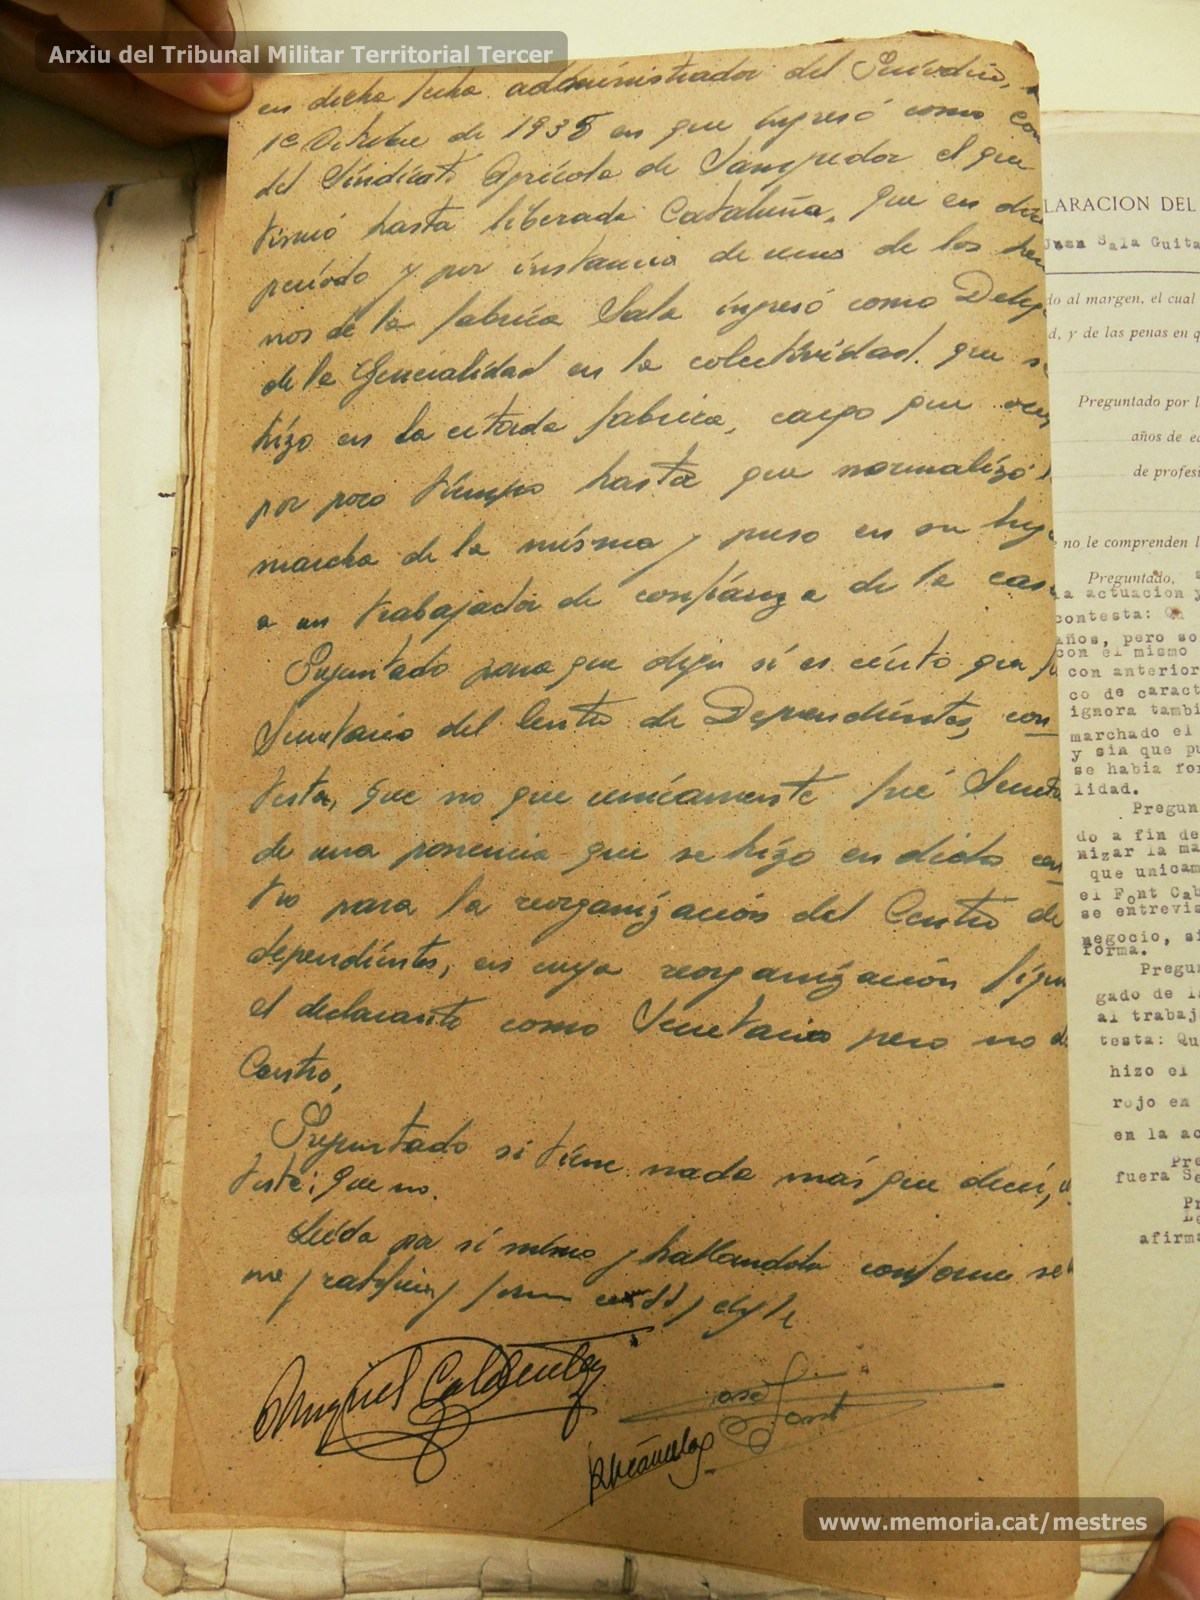 Arxiu del Tribunal Militar Territorial Tercer
en dicha fecha administrador del Periódico,
1º Octubre de 1938 en que ingresó como con
del Sindicato Agrícola de Sampedor el que
tinuó hasta liberada Cataluña, que en dich
período y por instancia de uno de los her
nos de la fabrica Sala ingresó como Deleg
de la Generalidad en la colectividad que se
hizo en la citada fabrica, cargo que
por poco tiempo hasta que normalizó l
marcha de la misma y puso en su lug
a un trabajador de confianza de la casa
Preguntado para que diga si es cierto que fu
Secretario del Centro de Dependientes, con
testa, que no que unicamente fué Secreta
de una ponencia que se hizo en dicho cen
tro para la reorganización del Centro de
dependientes, en cuya reorganización figur
el declarante como Secretario pero no d
Centro,
Preguntado si tiene nada más que decir, c
testa: Que no.
Leida por si mismo y hallandola conforme se
y ratifica y firma
Miguel
José Font
www.memoria.cat/mestres
LARACION DEL
Juan Sala Guita
do al margen, el cual
d, y de las penas en q
Preguntado por l
años de e
de profesi
no le comprenden l
Preguntado,
a actuacion y
contesta: Qu
años, pero so
con el mismo
con anterior
co de caract
ignora tambi
marchado el
y sin que pu
se habia for
lidad.
Pregun
do a fin de
nizar la ma
que unicam
el Font Cab
se entrevis
negocio, si
forma.
Pregun
gado de la
al trabaj
testa: Qu
hizo el
rojo en
en la ac
Pre
fuera Se
Pr
Le
afirma